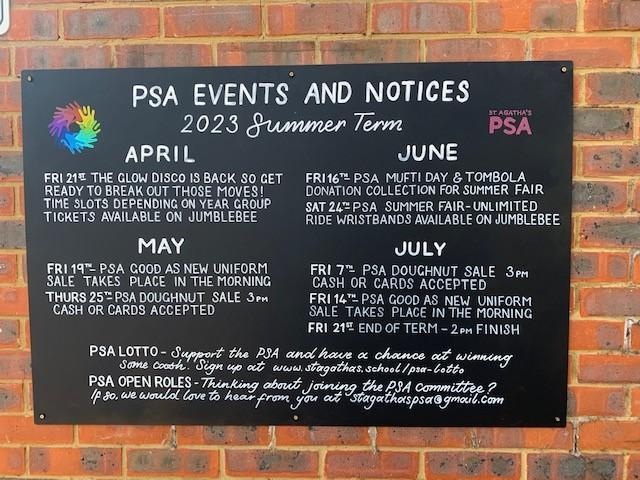 PSA EVENTS AND NOTICES
2023 Summer Term
ST AGATHA'S
PSA
APRIL
FRI 21ST THE GLOW DISCO IS BACK SO GET
READY TO BREAK OUT THOSE MOVES!
TIME SLOTS DEPENDING ON YEAR GROUP
TICKETS AVAILABLE ON JUMBLEBEE
MAY
FRI 19TH- PSA GOOD AS NEW UNIFORM
SALE TAKES PLACE IN THE MORNING
THURS 25TH PSA DOUGHNUT SALE 3PM
CASH OR CARDS ACCEPTED
JUNE
FRI 16TH- PSA MUFTI DAY & TOMBOLA
DONATION COLLECTION FOR SUMMER FAIR
SAT 24TH PSA SUMMER FAIR-UNLIMITED
RIDE WRISTBANDS AVAILABLE ON JUMBLEBEE
JULY
FRI 7TH- PSA DOUGHNUT SALE 3PM
CASH OR CARDS ACCEPTED
FRI 14TH- PSA GOOD AS NEW UNIFORM
SALE TAKES PLACE IN THE MORNING
FRI 21ST END OF TERM - 2PM FINISH
PSA LOTTO - Support the PSA and have a chance at winning
some cash. Sign up at www.stagathas.school/psa-lotto
PSA OPEN ROLES - Thinking about joining the PSA Committee?
If so, we would love to hear from you at stagathaspsa@gmail.com